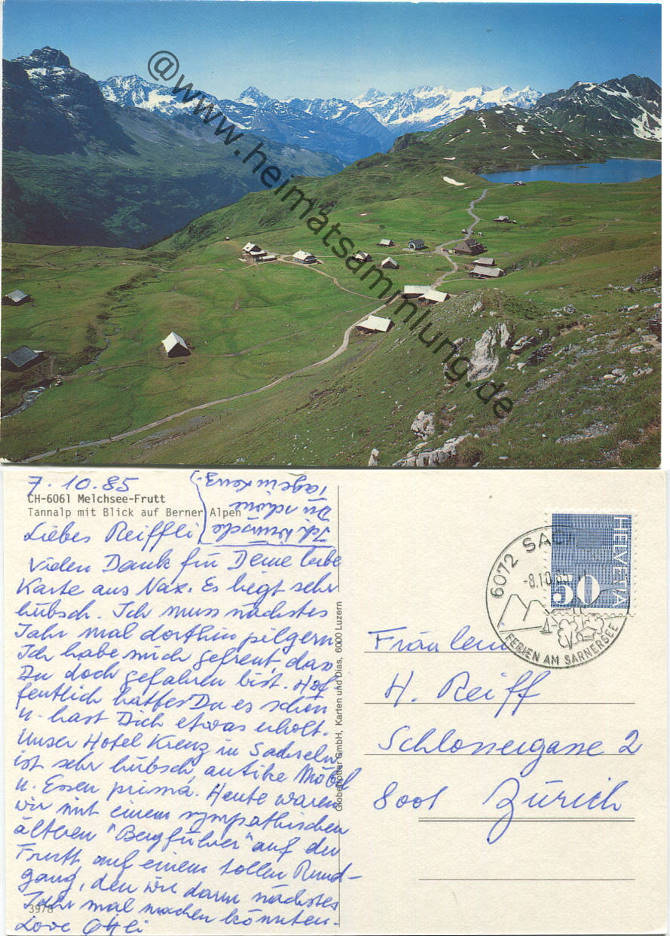 @www.heimatsammlung.de
7.10.85
CH-6061 Melchsee-Frutt
Tannalp mit Blick auf Berner Alpen
Ich wünsche
Dir schöne
Tage in Kenz.
Liebes Reiffli
Vielen Dank für Deine liebe
Karte aus Nax. Es liegt sehr
hübsch. Ich muss nächstes
Jahr mal dorthin pilgern.
Ich habe mich gefreut, dass
Du doch gefahren bist. Hof
fentlich hattest Du es schön
u. hast Dich etwas erholt.
Unser Hotel Kreuz in Sachseln
ist sehr hübsch, antike Möbel
u. Essen prima. Heute waren
wir mit einem sympathischen
älteren "Bergführer" auf der
Frutt auf einem tollen Rund-
gang, den wir dann nächstes
Jahr mal machen könnten.
Love Otti
3978
Globetrotter GmbH, Karten und Dias, 6000 Luzern
6072 SAC
-8.10.
FERIEN AM SARNERSEE
HELVETIA
50
Fräulein
H. Reiff
Schlossergasse 2
8001 Zürich